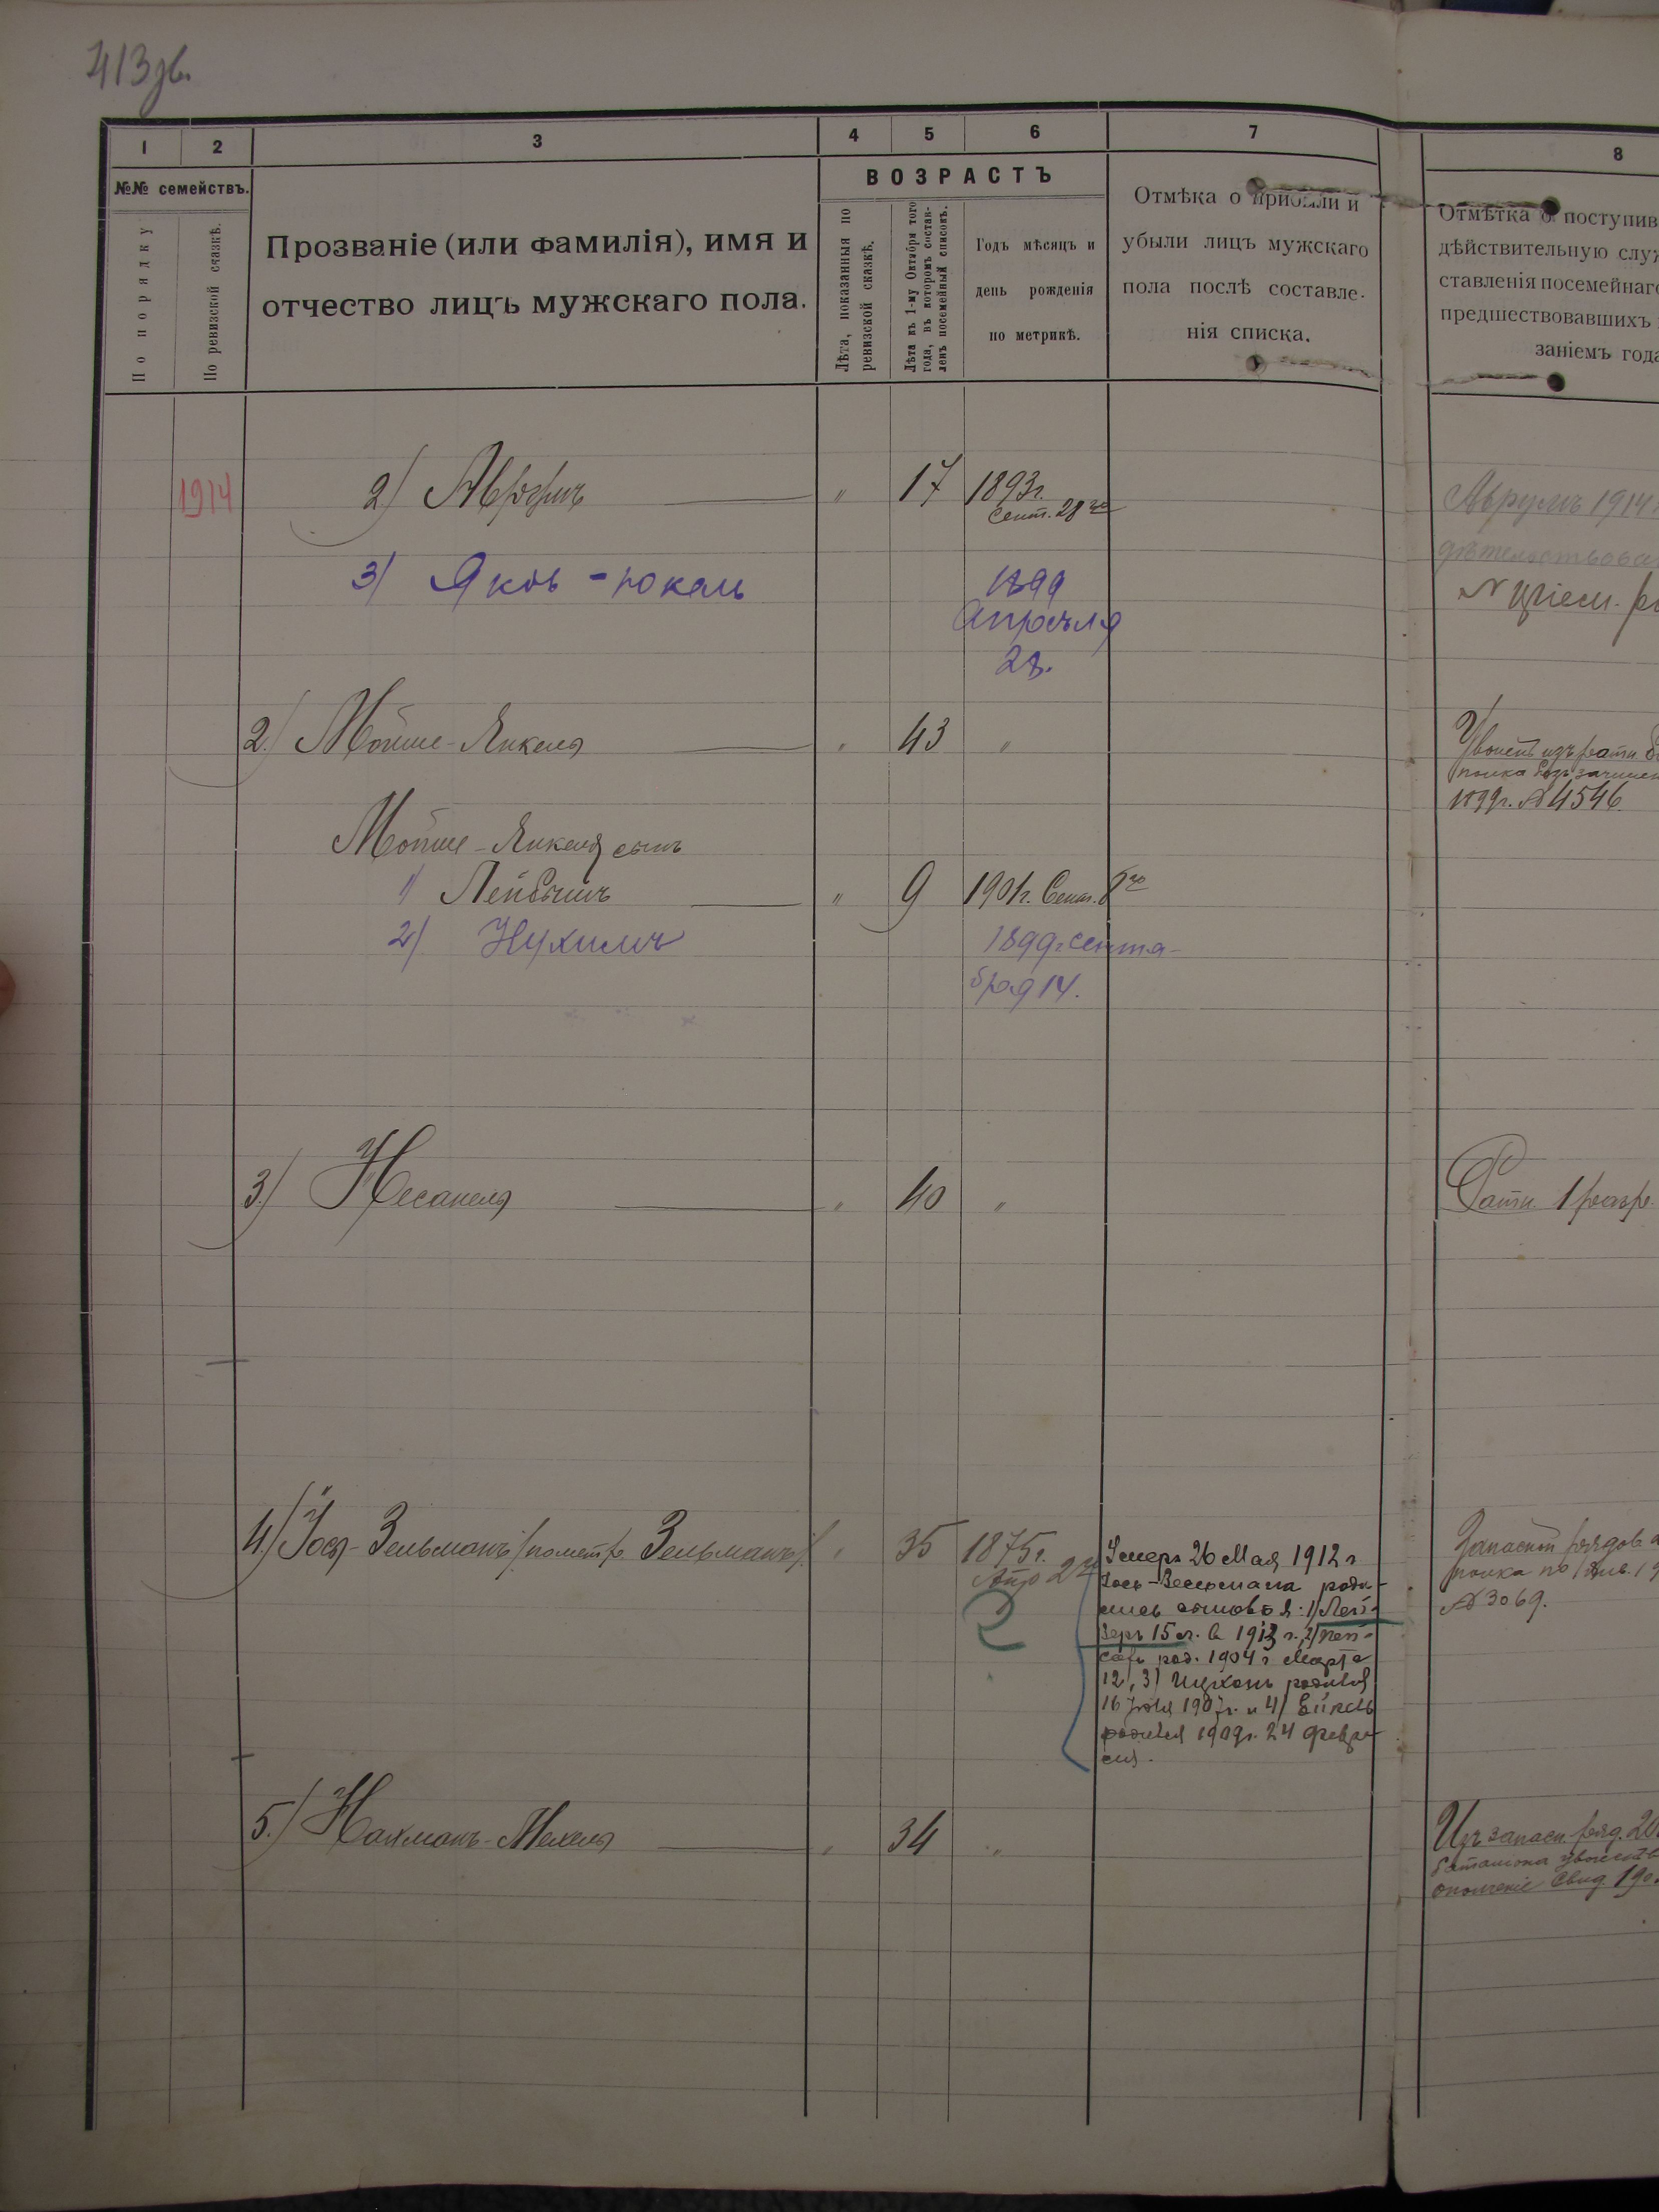 413 зв.
1 2 3 4 5 6 7 8
№№ семействъ.
По порядку
По ревизской сказкѣ.
Прозваніе (или фамилія), имя и
отчество лицъ мужскаго пола.
ВОЗРАСТЪ
Лѣта, показанныя по
ревизской сказкѣ.
Лѣта къ 1-му Октября того
года, въ которомъ состав-
ленъ посемейный списокъ.
Годъ мѣсяцъ и
день рожденія
по метрикѣ.
Отмѣка о прибыли и
убыли лицъ мужскаго
пола послѣ составле-
нія списка.
Отмѣтка о поступив
дѣйствительную служ
ставленія посемейнаго
предшествовавшихъ
заніемъ года
1914 2) Аврумъ " 17 1893г.
Сент. 28го
Аврумъ 1914
3) Яковъ-Юкель 1899
Апрѣля
28.
2) Мойше-Янкель " 43 "
Уволенъ изъ
1899г. № 4546
Мойше-Янкеля сынъ
1) Лейбишъ " 9 1901г. Сент. 8го
2) Нухимъ 1899г сентя-
бря 14.
3.) Несанель " 40 "
Ратн. 1 разр.
4.) Іось-Зельманъ (по метр. Зельманъ) " 35 1875г.
2го
Умеръ 26 Мая 1912 г
Іось-Зельмана роди-
лись сыновья: 1) Лей-
зеръ 15 л. в 1913 г., 2)
род. 1904 г Марта
12, 3) Ицхокъ родился
16 1907г. и 4)
родился 1909г. 24 Февра-
ля.
Запасной рядов
полка по 1 янв.
№ 3069.
5.) Нахманъ-Мехель " 34 "
Изъ запасн. ряд. 20
баталіона
ополченіе Свид. 190